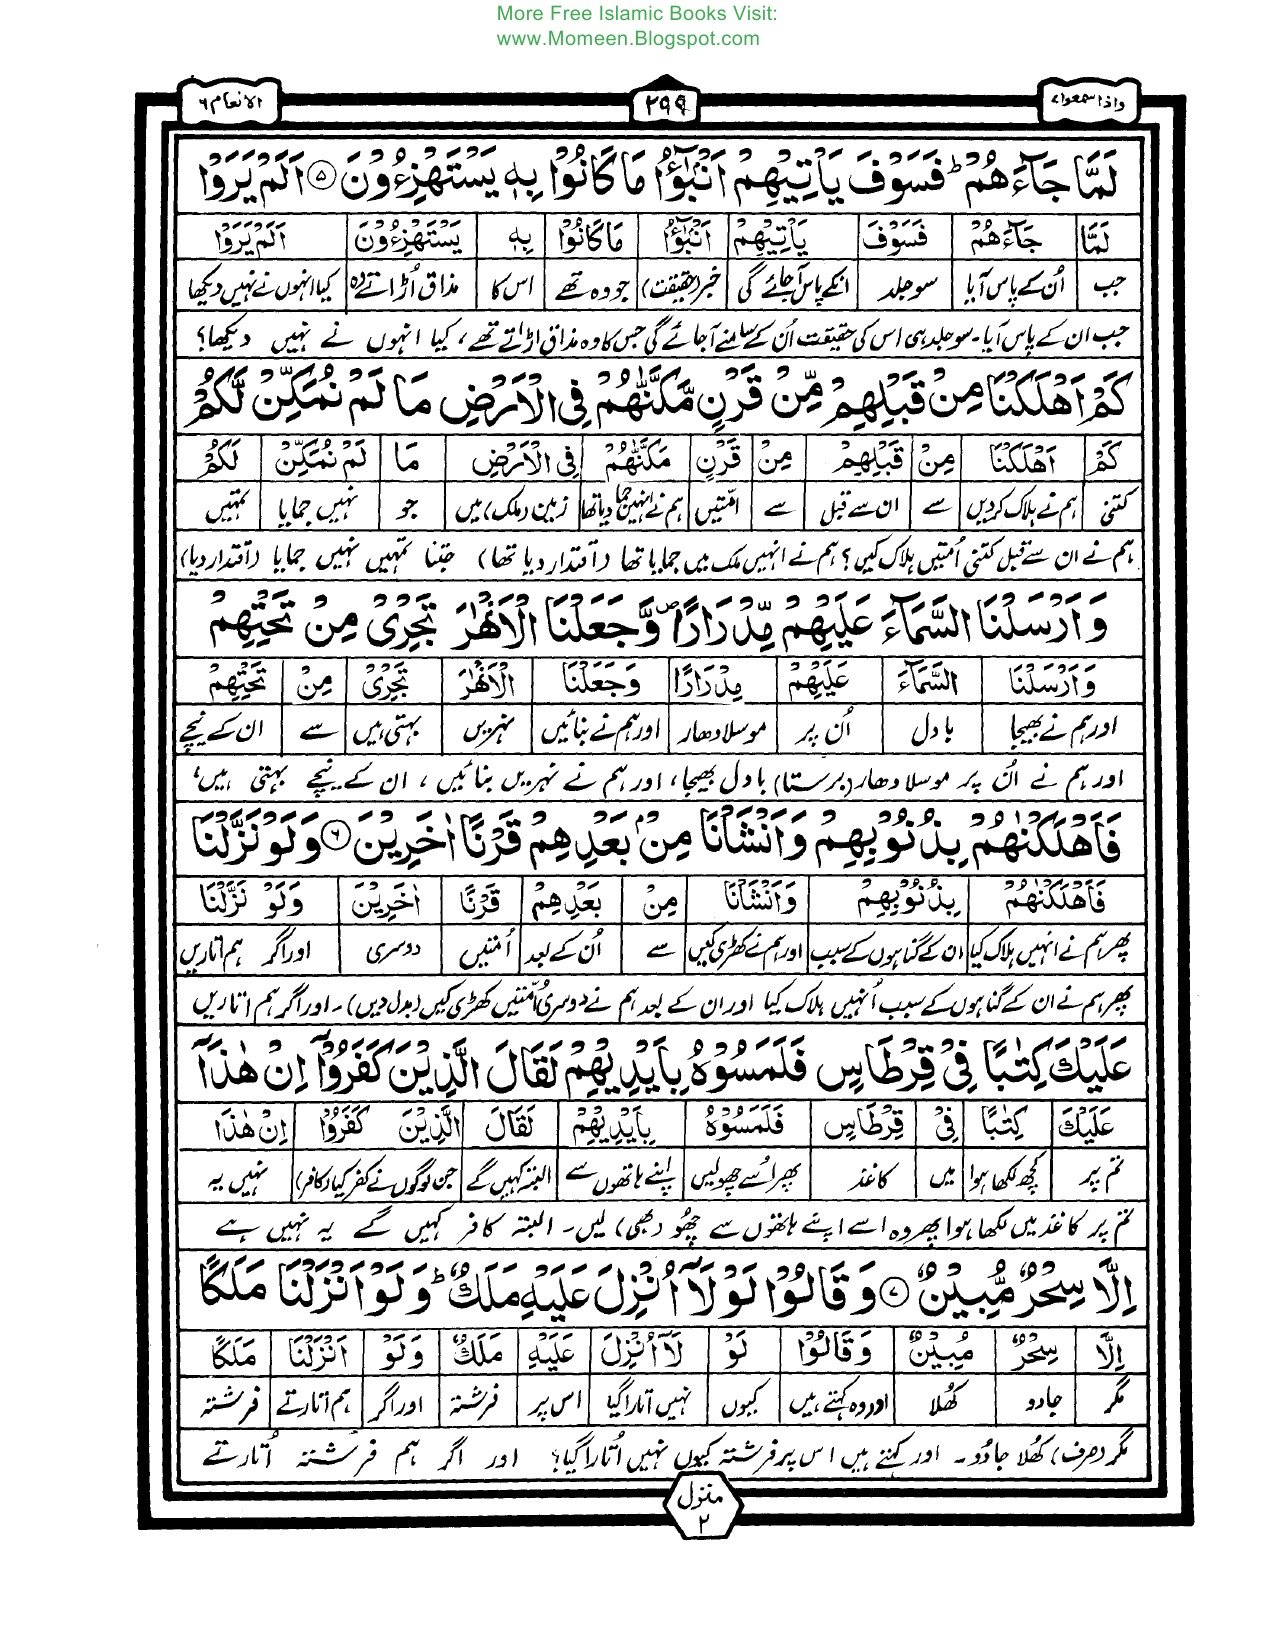 More Free Islamic Books Visit:
www.Momeen.Blogspot.com
واذا سمعوا۷ ۲۹۹ الانعام ۶
لَمَّا جَآءَهُمْ ؕ فَسَوْفَ يَاْتِيْهِمْ اَنْۢبٰٓؤُا مَا كَانُوْا بِهٖ يَسْتَهْزِءُوْنَ ۵ اَلَمْ يَرَوْا
لَمَّا جَآءَهُمْ فَسَوْفَ يَاْتِيْهِمْ اَنْۢبٰٓؤُا مَا كَانُوْا بِهٖ يَسْتَهْزِءُوْنَ اَلَمْ يَرَوْا
جب اُن کے پاس آیا سو جلد انکے پاس آجائے گی خبر (حقیقت) جو وہ تھے اس کا مذاق اُڑاتے رہے کیا انہوں نے نہیں دیکھا
جب ان کے پاس آیا۔ سو جلد ہی اس کی حقیقت اُن کے سامنے آجائے گی جس کا وہ مذاق اڑاتے تھے، کیا انہوں نے نہیں دیکھا؟
كَمْ اَهْلَكْنَا مِنْ قَبْلِهِمْ مِّنْ قَرْنٍ مَّكَّنّٰهُمْ فِى الْاَرْضِ مَا لَمْ نُمَكِّنْ لَّكُمْ
كَمْ اَهْلَكْنَا مِنْ قَبْلِهِمْ مِنْ قَرْنٍ مَكَّنّٰهُمْ فِى الْاَرْضِ مَا لَمْ نُمَكِّنْ لَكُمْ
کتنی ہم نے ہلاک کردیں سے ان سے قبل سے امتیں ہم نے انہیں جما دیا تھا زمین (ملک) میں جو نہیں جمایا تمہیں
ہم نے ان سے قبل کتنی اُمتیں ہلاک کیں؟ ہم نے انہیں ملک میں جمایا تھا (اقتدار دیا تھا) جتنا تمہیں نہیں جمایا (اقتدار دیا)
وَاَرْسَلْنَا السَّمَآءَ عَلَيْهِمْ مِّدْرَارًا ۪ وَّجَعَلْنَا الْاَنْهٰرَ تَجْرِىْ مِنْ تَحْتِهِمْ
وَاَرْسَلْنَا السَّمَآءَ عَلَيْهِمْ مِدْرَارًا وَجَعَلْنَا الْاَنْهٰرَ تَجْرِىْ مِنْ تَحْتِهِمْ
اور ہم نے بھیجا بادل اُن پر موسلا دھار اور ہم نے بنائیں نہریں بہتی ہیں سے ان کے نیچے
اور ہم نے اُن پر موسلا دھار (برستا) بادل بھیجا، اور ہم نے نہریں بنائیں، ان کے نیچے بہتی ہیں،
فَاَهْلَكْنٰهُمْ بِذُنُوْبِهِمْ وَاَنْشَاْنَا مِنْۢ بَعْدِهِمْ قَرْنًا اٰخَرِيْنَ ۶ وَلَوْ نَزَّلْنَا
فَاَهْلَكْنٰهُمْ بِذُنُوْبِهِمْ وَاَنْشَاْنَا مِنْ بَعْدِهِمْ قَرْنًا اٰخَرِيْنَ وَلَوْ نَزَّلْنَا
پھر ہم نے انہیں ہلاک کیا ان کے گناہوں کے سبب اور ہم نے کھڑی کیں سے اُن کے بعد اُمتیں دوسری اور اگر ہم اتاریں
پھر ہم نے ان کے گناہوں کے سبب اُنہیں ہلاک کیا اور ان کے بعد ہم نے دوسری اُمتیں کھڑی کیں (بدل دیں)۔ اور اگر ہم اتاریں
عَلَيْكَ كِتٰبًا فِىْ قِرْطَاسٍ فَلَمَسُوْهُ بِاَيْدِيْهِمْ لَقَالَ الَّذِيْنَ كَفَرُوْۤا اِنْ هٰذَاۤ
عَلَيْكَ كِتٰبًا فِىْ قِرْطَاسٍ فَلَمَسُوْهُ بِاَيْدِيْهِمْ لَقَالَ الَّذِيْنَ كَفَرُوْا اِنْ هٰذَا
تم پر کچھ لکھا ہوا میں کاغذ پھر اُسے چھولیں اپنے ہاتھوں سے البتہ کہیں گے جن لوگوں نے کفر کیا (کافر) نہیں یہ
تم پر کاغذ میں لکھا ہوا پھر وہ اسے اپنے ہاتھوں سے چھو (بھی) لیں۔ البتہ کافر کہیں گے یہ نہیں ہے
اِلَّا سِحْرٌ مُّبِيْنٌ ۷ وَقَالُوْا لَوْلَاۤ اُنْزِلَ عَلَيْهِ مَلَكٌ ؕ وَلَوْ اَنْزَلْنَا مَلَكًا
اِلَّا سِحْرٌ مُبِيْنٌ وَقَالُوْا لَوْ لَاۤ اُنْزِلَ عَلَيْهِ مَلَكٌ وَلَوْ اَنْزَلْنَا مَلَكًا
مگر جادو کھُلا اور وہ کہتے ہیں کیوں نہیں اتارا گیا اس پر فرشتہ اور اگر ہم اتارتے فرشتہ
مگر (صرف) کھُلا جادُو۔ اور کہتے ہیں اس پر فرشتہ کیوں نہیں اُتارا گیا؟ اور اگر ہم فرشتہ اُتارتے
منزل
۲